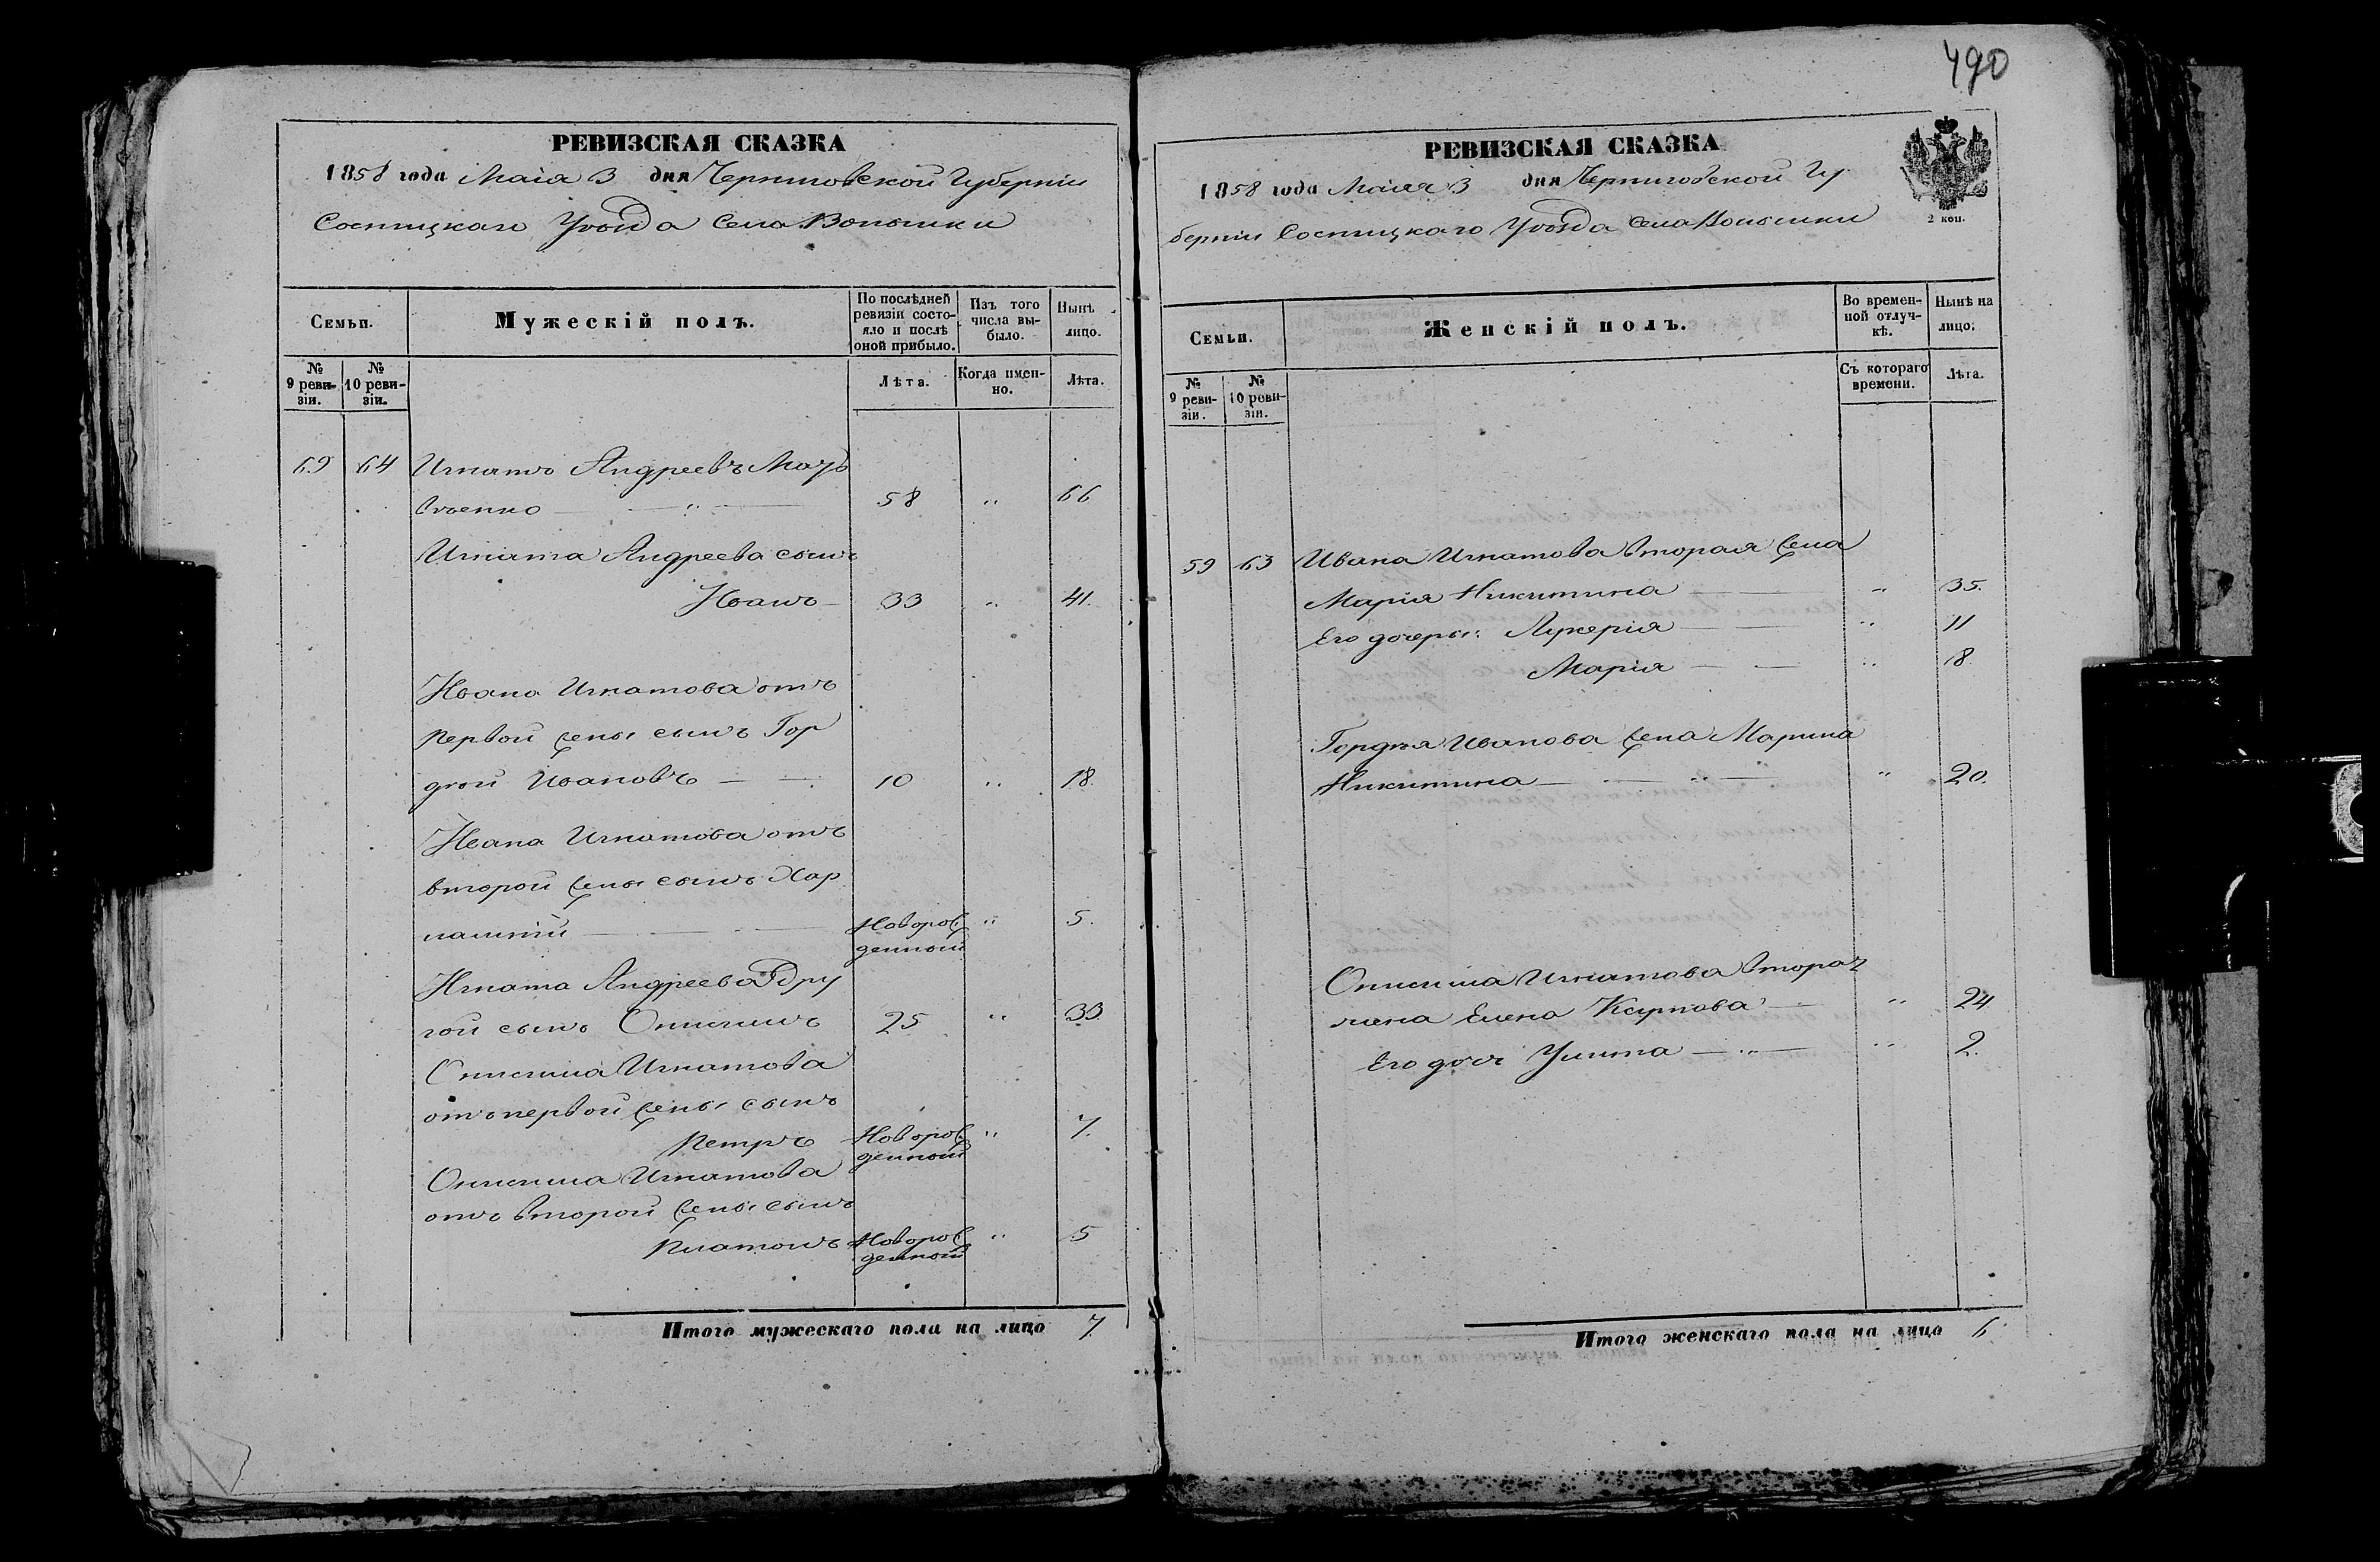 490
РЕВИЗСКАЯ СКАЗКА
1858 года Маія 3 дня Черниговской Губерніи
Сосницкаго Уѣзда Села Волынки
Семьи.
Мужескій полъ.
По послѣдней ревизіи состояло и послѣ оной прибыло.
Изъ того числа выбыло.
Нынѣ лицо.
№ 9 ревизіи.
№ 10 ревизіи.
Лѣта.
Когда именно.
Лѣта.
69 64 Игнатъ Андреевъ
58 " 66
Игната Андреева сынъ
Иванъ 33 " 41.
Ивана Игнатова отъ
первой жены сынъ Гор
дѣй Ивановъ 10 " 18.
Ивана Игнатова отъ
второй жены сынъ Хар
лампій Новорож
денный " 5.
Игната Андреева дру
гой сынъ Онисимъ 25 " 33.
Онисима Игнатова
отъ первой жены сынъ
Петръ Новорож
денный " 7.
Онисима Игнатова
отъ второй жены сынъ
Платонъ Новорож
денный " 5
Итого мужескаго пола на лицо 7.
РЕВИЗСКАЯ СКАЗКА
1858 года Маія 3 дня Черниговской Гу
берніи Сосницкаго Уѣзда Села Волынки
2 коп.
Семьи.
Женскій полъ.
Во временной отлучкѣ.
Нынѣ на лицо.
№ 9 ревизіи.
№ 10 ревизіи.
Съ котораго времени.
Лѣта.
59 63 Ивана Игнатова вторая жена
Марія Никитина " 35.
Его дочери: Лукерія " 11
Марія " 8.
Гордѣя Иванова жена Марина
Никитина " 20.
Онисима Игнатова вторая
жена Елена Карпова " 24
Его дочь Улита " 2.
Итого женскаго пола на лицо 6